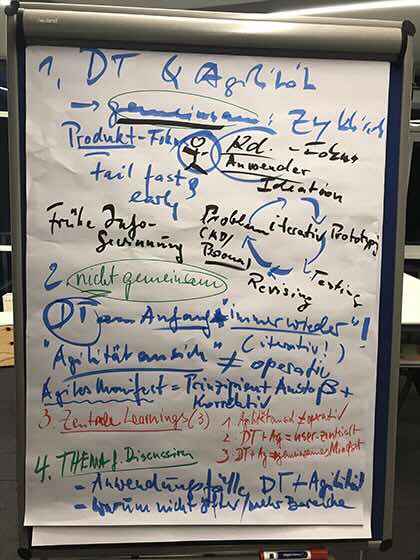 1. DT & Agilität
→ gemeinsam: Zyklisch
Produkt-Fokus
Kd. - Fokus
Anwender
fail fast &
early
Ideation
Frühe Info-
gewinnung
Problem
iterativ
Prototyping
Testing
Revising
2. nicht gemeinsam
DT am Anfang "immer wieder"!
(iterativ!)
"Agilität an sich" ≠ operativ
Agiles Manifest = Prinzipien Anstoß +
Korrektiv
3. Zentrale Learnings (3)
1 Agilität an sich ≠ operativ
2 DT + Ag = user-zentriert
3 DT + Ag = gemeinsames Mindset
4. THEMA f. Discussion
- Anwendungsfälle DT + Agilität
- Warum nicht öfter/mehr Bereiche